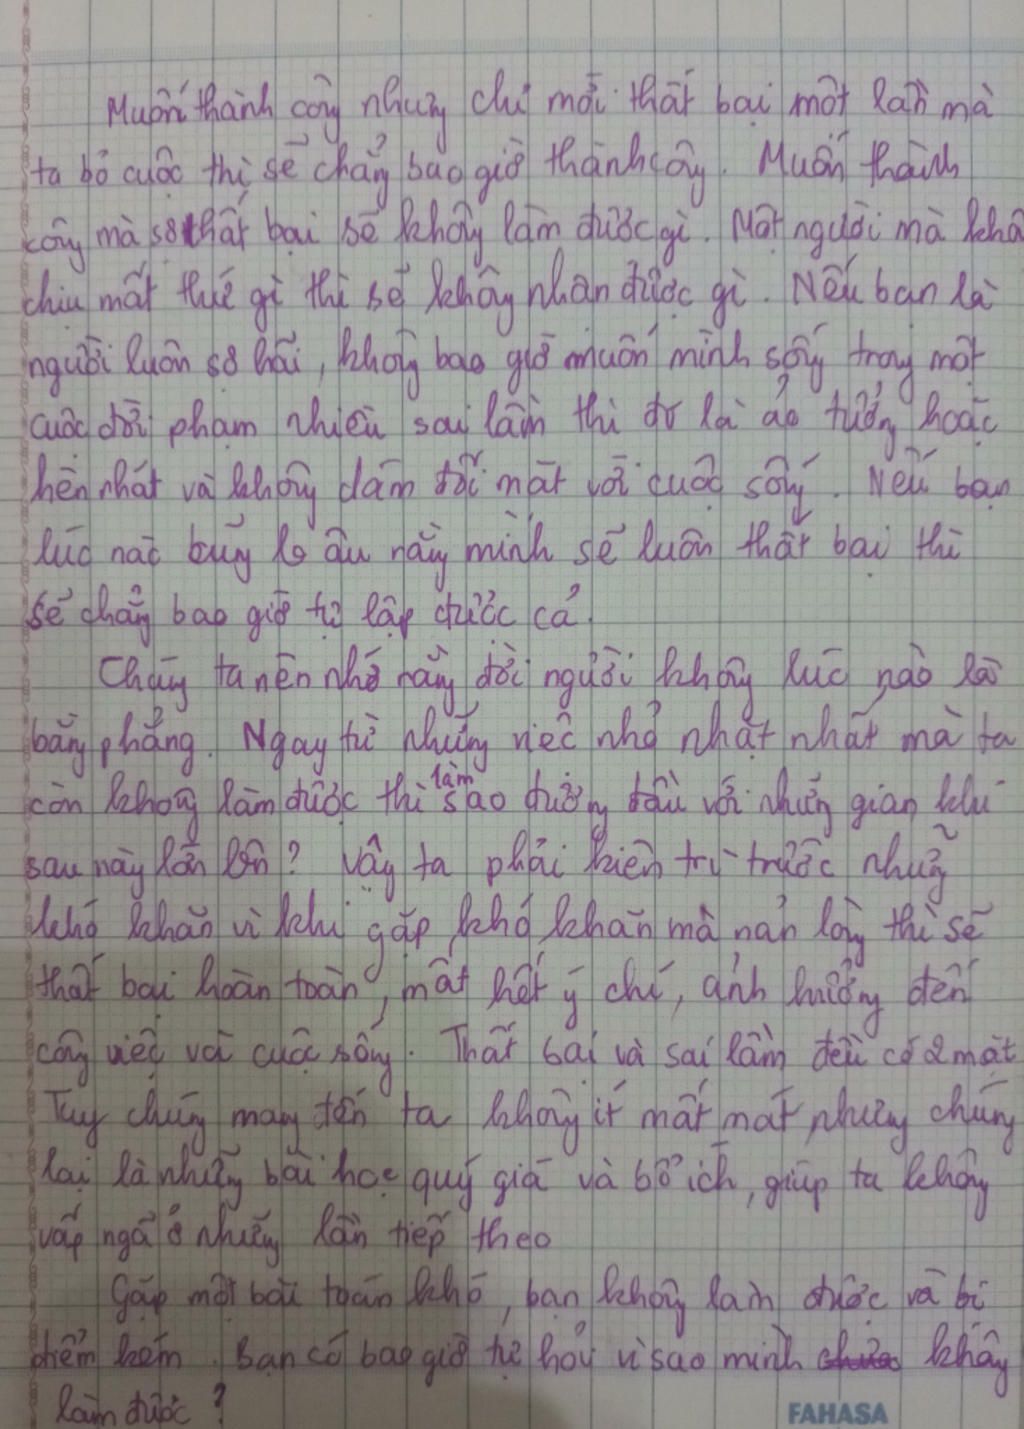 Muốn thành công nhưng chỉ mới thất bại một lần mà
ta bỏ cuộc thì sẽ chẳng bao giờ thành công. Muốn thành
công mà sợ thất bại sẽ không làm được gì. Một người mà khô
chịu mất thứ gì thì sẽ không nhận được gì. Nếu bạn là
người luôn sợ hãi, không bao giờ muốn mình sống trong một
cuộc đời phạm nhiều sai lầm thì đó là ảo tưởng hoặc
hèn nhát và không dám đối mặt với cuộc sống. Nếu bạn
lúc nào cũng lo âu rằng mình sẽ luôn thất bại thì
sẽ chẳng bao giờ tự lập được cả.
Chúng ta nên nhớ rằng đời người không lúc nào là
bằng phẳng. Ngay từ những việc nhỏ nhặt nhất mà ta
còn không làm được thì làm sao đương đầu với những gian khó
sau này lớn lên? Vậy ta phải kiên trì trước những
khó khăn vì khi gặp khó khăn mà nản lòng thì sẽ
thất bại hoàn toàn, mất hết ý chí, ảnh hưởng đến
công việc và cuộc sống. Thất bại và sai lầm đều có 2 mặt
Tuy chúng mang đến ta không ít mất mát nhưng chúng
lại là những bài học quý giá và bổ ích, giúp ta không
vấp ngã ở những lần tiếp theo
Gặp một bài toán khó, bạn không làm được và bị
điểm kém. Bạn có bao giờ tự hỏi vì sao mình không
làm được?
FAHASA